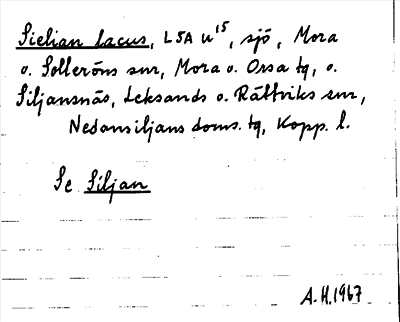 Sielian lacus, LSA u¹⁵, sjö, Mora
o. Solleröns snr, Mora o. Orsa tg, o.
Siljansnäs, Leksands o. Rättviks snr,
Nedansiljans doms. tg, Kopp. l.
Se Siljan
A.H.1967